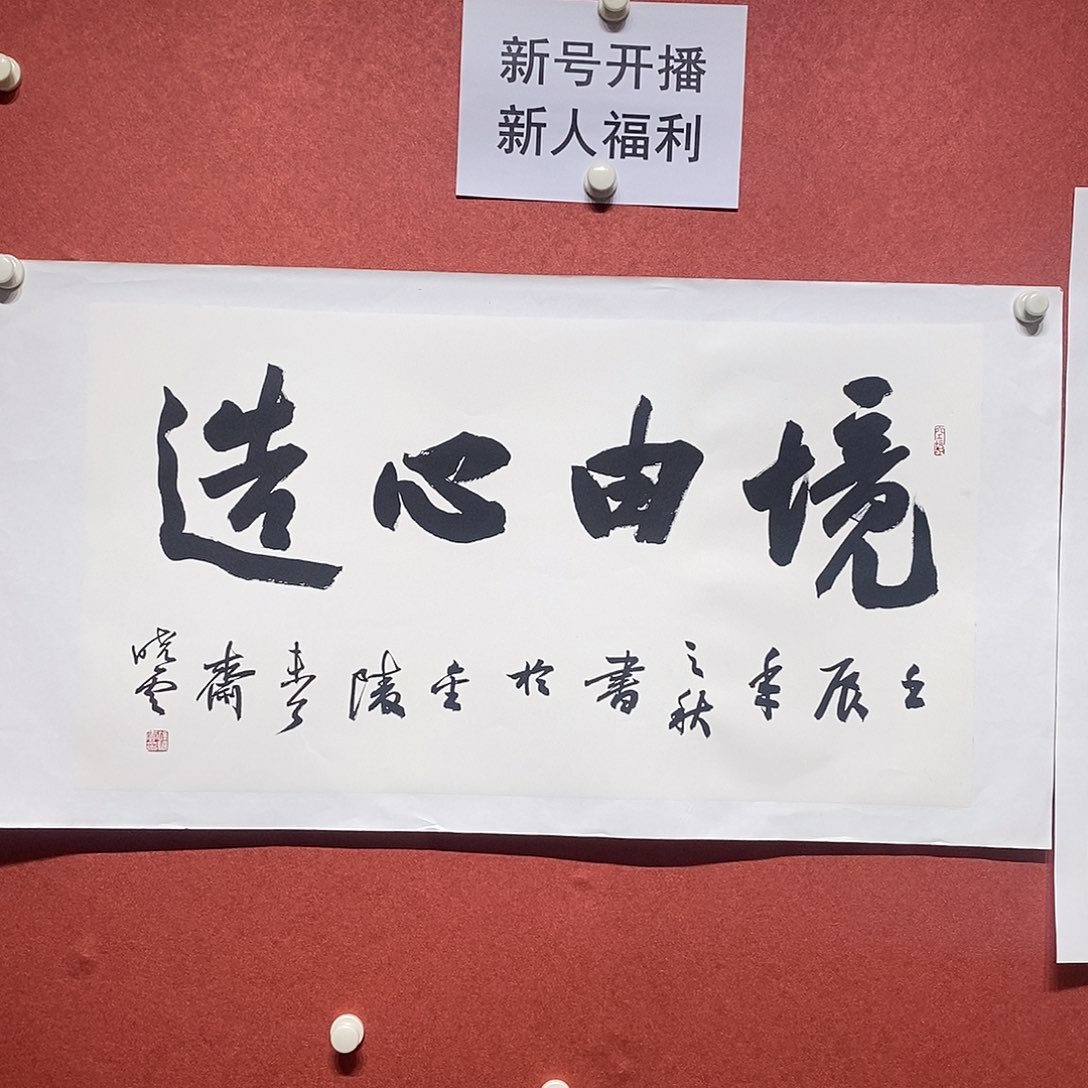 新号开播
新人福利
境由心造
壬辰年之秋書於金陵未了齋晓雲